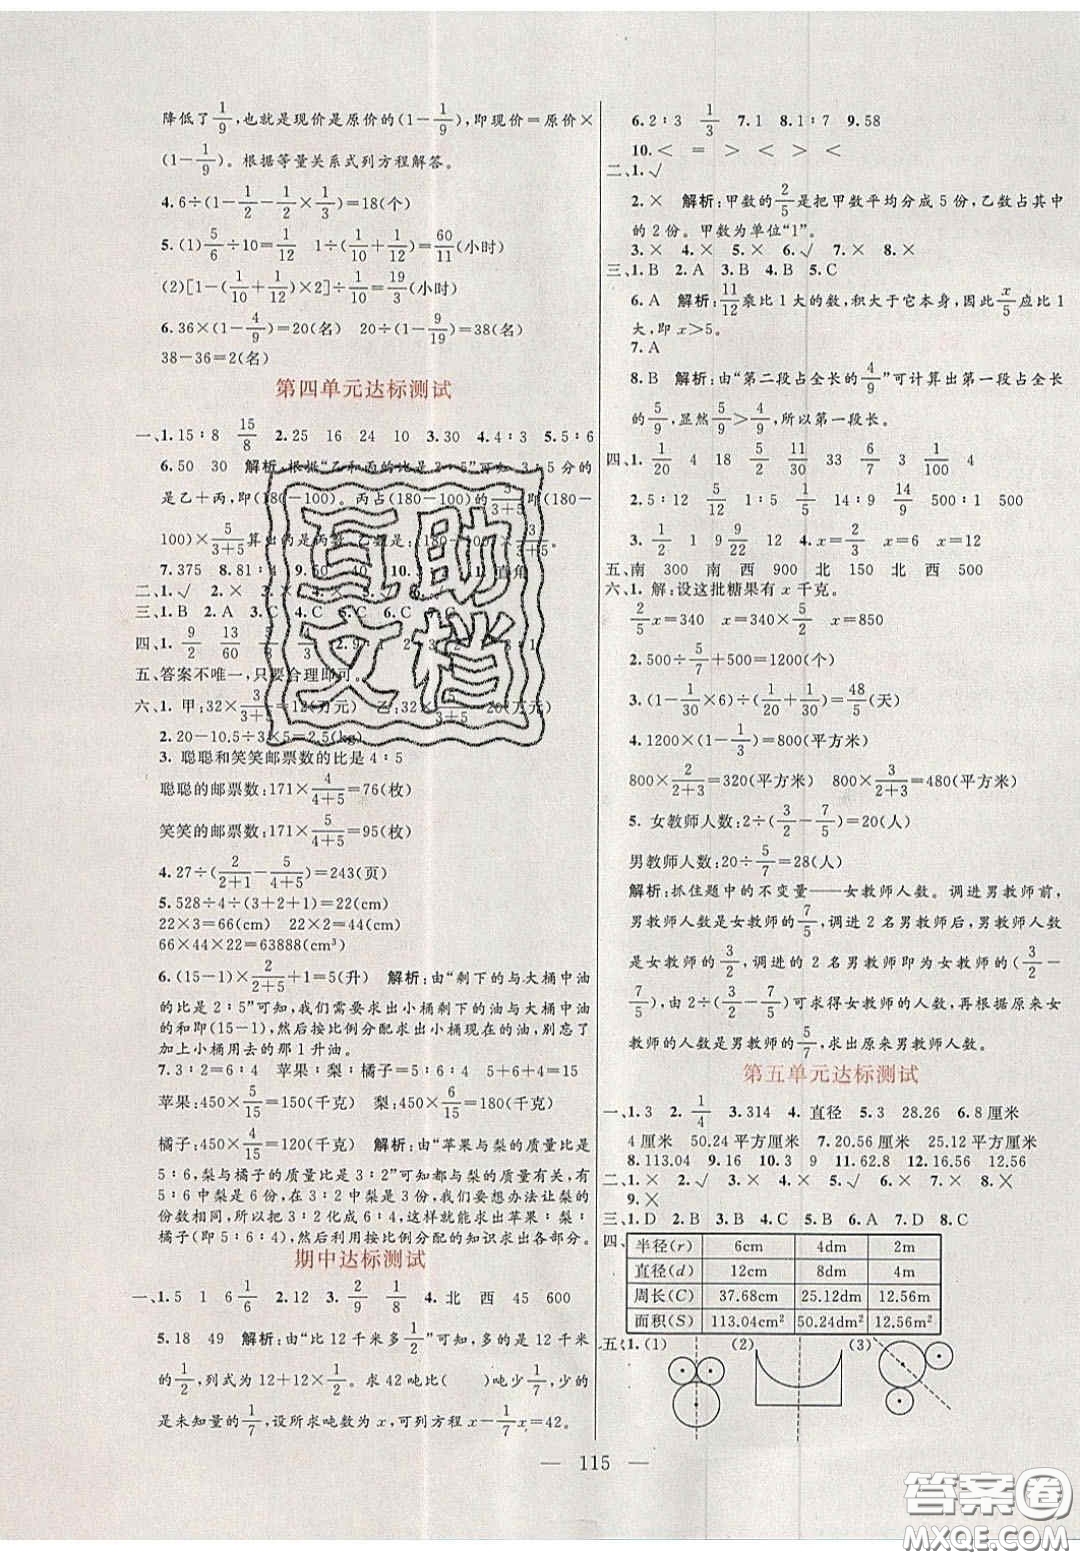 降低了1/9,也就是现价是原价的(1-1/9),即现价=原价×
(1-1/9)。根据等量关系式列方程解答。
4.6÷(1-1/2-1/2×1/3)=18(个)
5.(1)5/6÷10=1/12 1÷(1/10+1/12)=60/11(小时)
(2)[1-(1/10+1/12)×2]÷1/10=19/3(小时)
6.36×(1-4/9)=20(名) 20÷9/19=38(名)
38-36=2(名)
第四单元达标测试
一、1.15∶8 15/8 2.25 16 24 10 3.30 4.4∶3 5.5∶6
6.50 30 解析:根据“乙和丙的比是3∶5”可知3+5分的
是乙+丙,即(180-100)。丙占(180-100)的5/3+5,即(180-
100)×5/3+5算出丙是丙数。乙数是:(180-100)×3/3+5。
7.375 8.81∶4 9.50 10. 直角
二、1.√ 2.×
三、1.B 2.A 3.C
四、1.9/2 13/60 2.9∶
五、答案不唯一,只要合理即可。
六、1.甲:32×3/3+5=12(万元) 乙:32×5/3+5=20(万元)
2.20-10.5÷3×5=2.5(kg)
3.聪聪和笑笑邮票数的比是4∶5
聪聪的邮票数:171×4/4+5=76(枚)
笑笑的邮票数:171×5/4+5=95(枚)
4.27÷(2/2+1-5/5+4)=243(页)
5.528÷4÷(3+2+1)=22(cm)
22×3=66(cm) 22×2=44(cm)
66×44×22=63888(cm³)
6.(15-1)×2/2+5+1=5(升) 解析:由“剩下的与大桶中油
的比是2∶5”可知,我们需要求出小桶剩下的油与大桶中油
的和即(15-1),然后按比例分配求出小桶现在的油,别忘了
加上小桶用去的那1升油。
7.3∶2=6∶4 苹果∶梨∶橘子=5∶6∶4 5+6+4=15
苹果:450×5/15=150(千克) 梨:450×6/15=180(千克)
橘子:450×4/15=120(千克) 解析:由“苹果与梨的质量比是
5∶6,梨与橘子的质量比是3∶2”可知都与梨的质量有关,有
5∶6中梨是6份,在3∶2中梨是3份,我们要想办法让梨的
份数相同,所以把3∶2化成6∶4,这样就能求出苹果∶梨∶
橘子=5∶6∶4,然后利用按比例分配的知识求出各部分。
期中达标测试
一、1.5 1 6 1/6 2.12 3.2/9 1/8 4.北 西 45 600
5.18 49 解析:由“比12千米多1/2”可知,多的是12千米
的1/2,列式为12+12×1/2。求42吨比( )吨少1/7,少的
是未知量的1/7,设所求吨数为x,可列方程x-1/7x=42。
6.2∶3 1/3 7.1 8.1∶7 9.58
10.< = > > < >
二、1.√
2.× 解析:甲数的2/5是把甲数平均分成5份,乙数占其中
的2份。甲数为单位“1”。
3.× 4.× 5.× 6.√ 7.× 8.×
三、1.B 2.A 3.B 4.B 5.C
6.A 解析:11/12乘比1大的数,积大于它本身,因此x/5应比1
大,即x>5。
7.A
8.B 解析:由“第二段占全长的4/9”可计算出第一段占全长
的5/9,显然5/9>4/9,所以第一段长。
四、1.1/20 4 18 5/11 11/30 33 6/7 3 1/100 4
2.5∶12 5/12 1∶5 1/5 14∶9 14/9 500∶1 500
3.1/2 1 9/22 12 4.x=2/3 x=6 x=12
五、南 300 南 西 900 北 150 北 西 500
六、1.解:设这批糖果有x千克。
2/5x=340 x=340×5/2 x=850
2.500÷5/7+500=1200(个)
3.(1-1/30×6)÷(1/20+1/30)=48/5(天)
4.1200×(1-1/3)=800(平方米)
800×2/2+3=320(平方米) 800×3/2+3=480(平方米)
5.女教师人数:2÷(3/2-7/5)=20(人)
男教师人数:20÷5/7=28(人)
解析:抓住题中的不变量——女教师人数。调进男教师前,
男教师人数是女教师的7/5,调进2名男教师后,男教师人数
是女教师的3/2,调进的2名男教师即为女教师的(3/2-
7/5),由2÷(3/2-7/5)可求得女教师的人数,再根据原来女
教师的人数是男教师的5/7,求出原来男教师人数。
第五单元达标测试
一、1.3 2.1/4 3.314 4.直径 5.3 28.26 6.8厘米
4厘米 50.24平方厘米 7.20.56厘米 25.12平方厘米
8.113.04 9.16 10.3 9 11.62.8 12.16.56 12.56
二、1.× 2.√ 3.× 4.× 5.√ 6.× 7.× 8.×
9.×
三、1.D 2.B 3.B 4.C 5.B 6.A 7.D 8.C
四、半径(r) 6cm 4dm 2m
直径(d) 12cm 8dm 4m
周长(C) 37.68cm 25.12dm 12.56m
面积(S) 113.04cm² 50.24dm² 12.56m²
五、1.(1) (2) (3)
— 115 —
互助
文档
答案圈
MXQE.COM